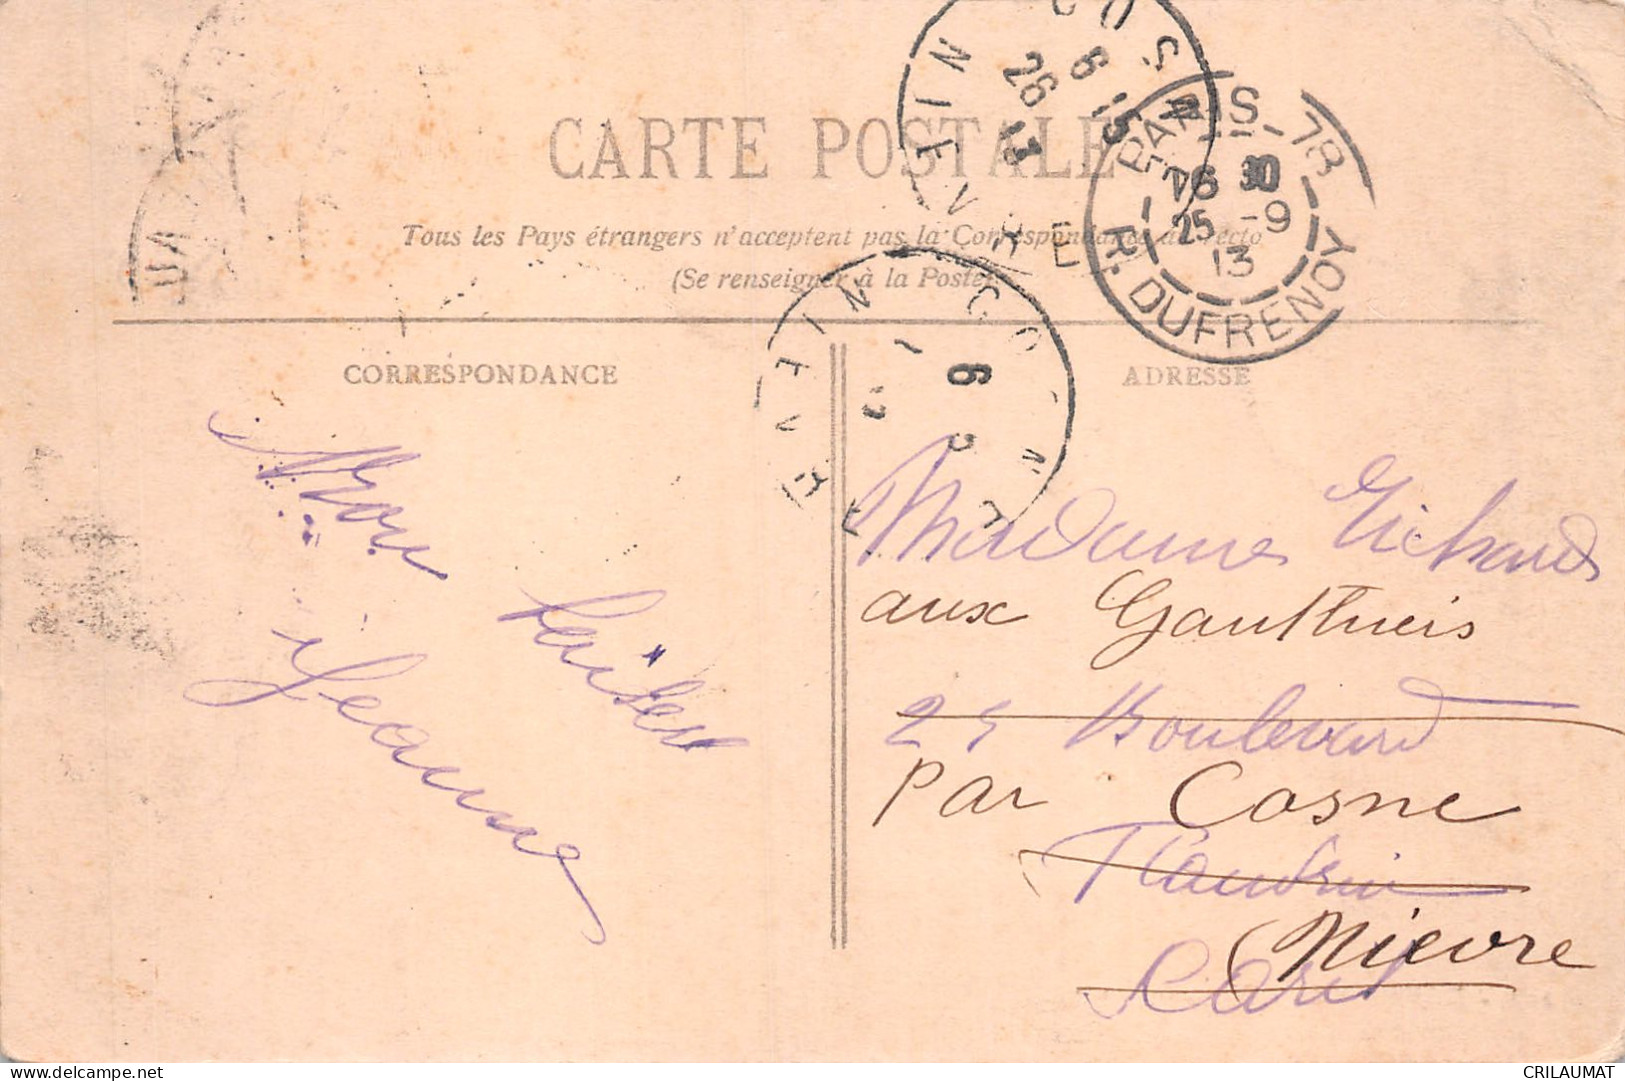 CARTE POSTALE
Tous les Pays étrangers n'acceptent pas la Correspondance au recto
(Se renseigner à la Poste)
COSNE
NIEVRE
6 15
26
13
PARIS - 78
16 30
25 -9
13
R. DUFRENOY
COSNE
NIEVRE
6
CORRESPONDANCE
ADRESSE
Mon
baiser
Jeanne
Madame Richard
aux Gauthiers
25 Boulevard
par Cosne
Flandrin
(Nièvre
Paris
CRILAUMAT